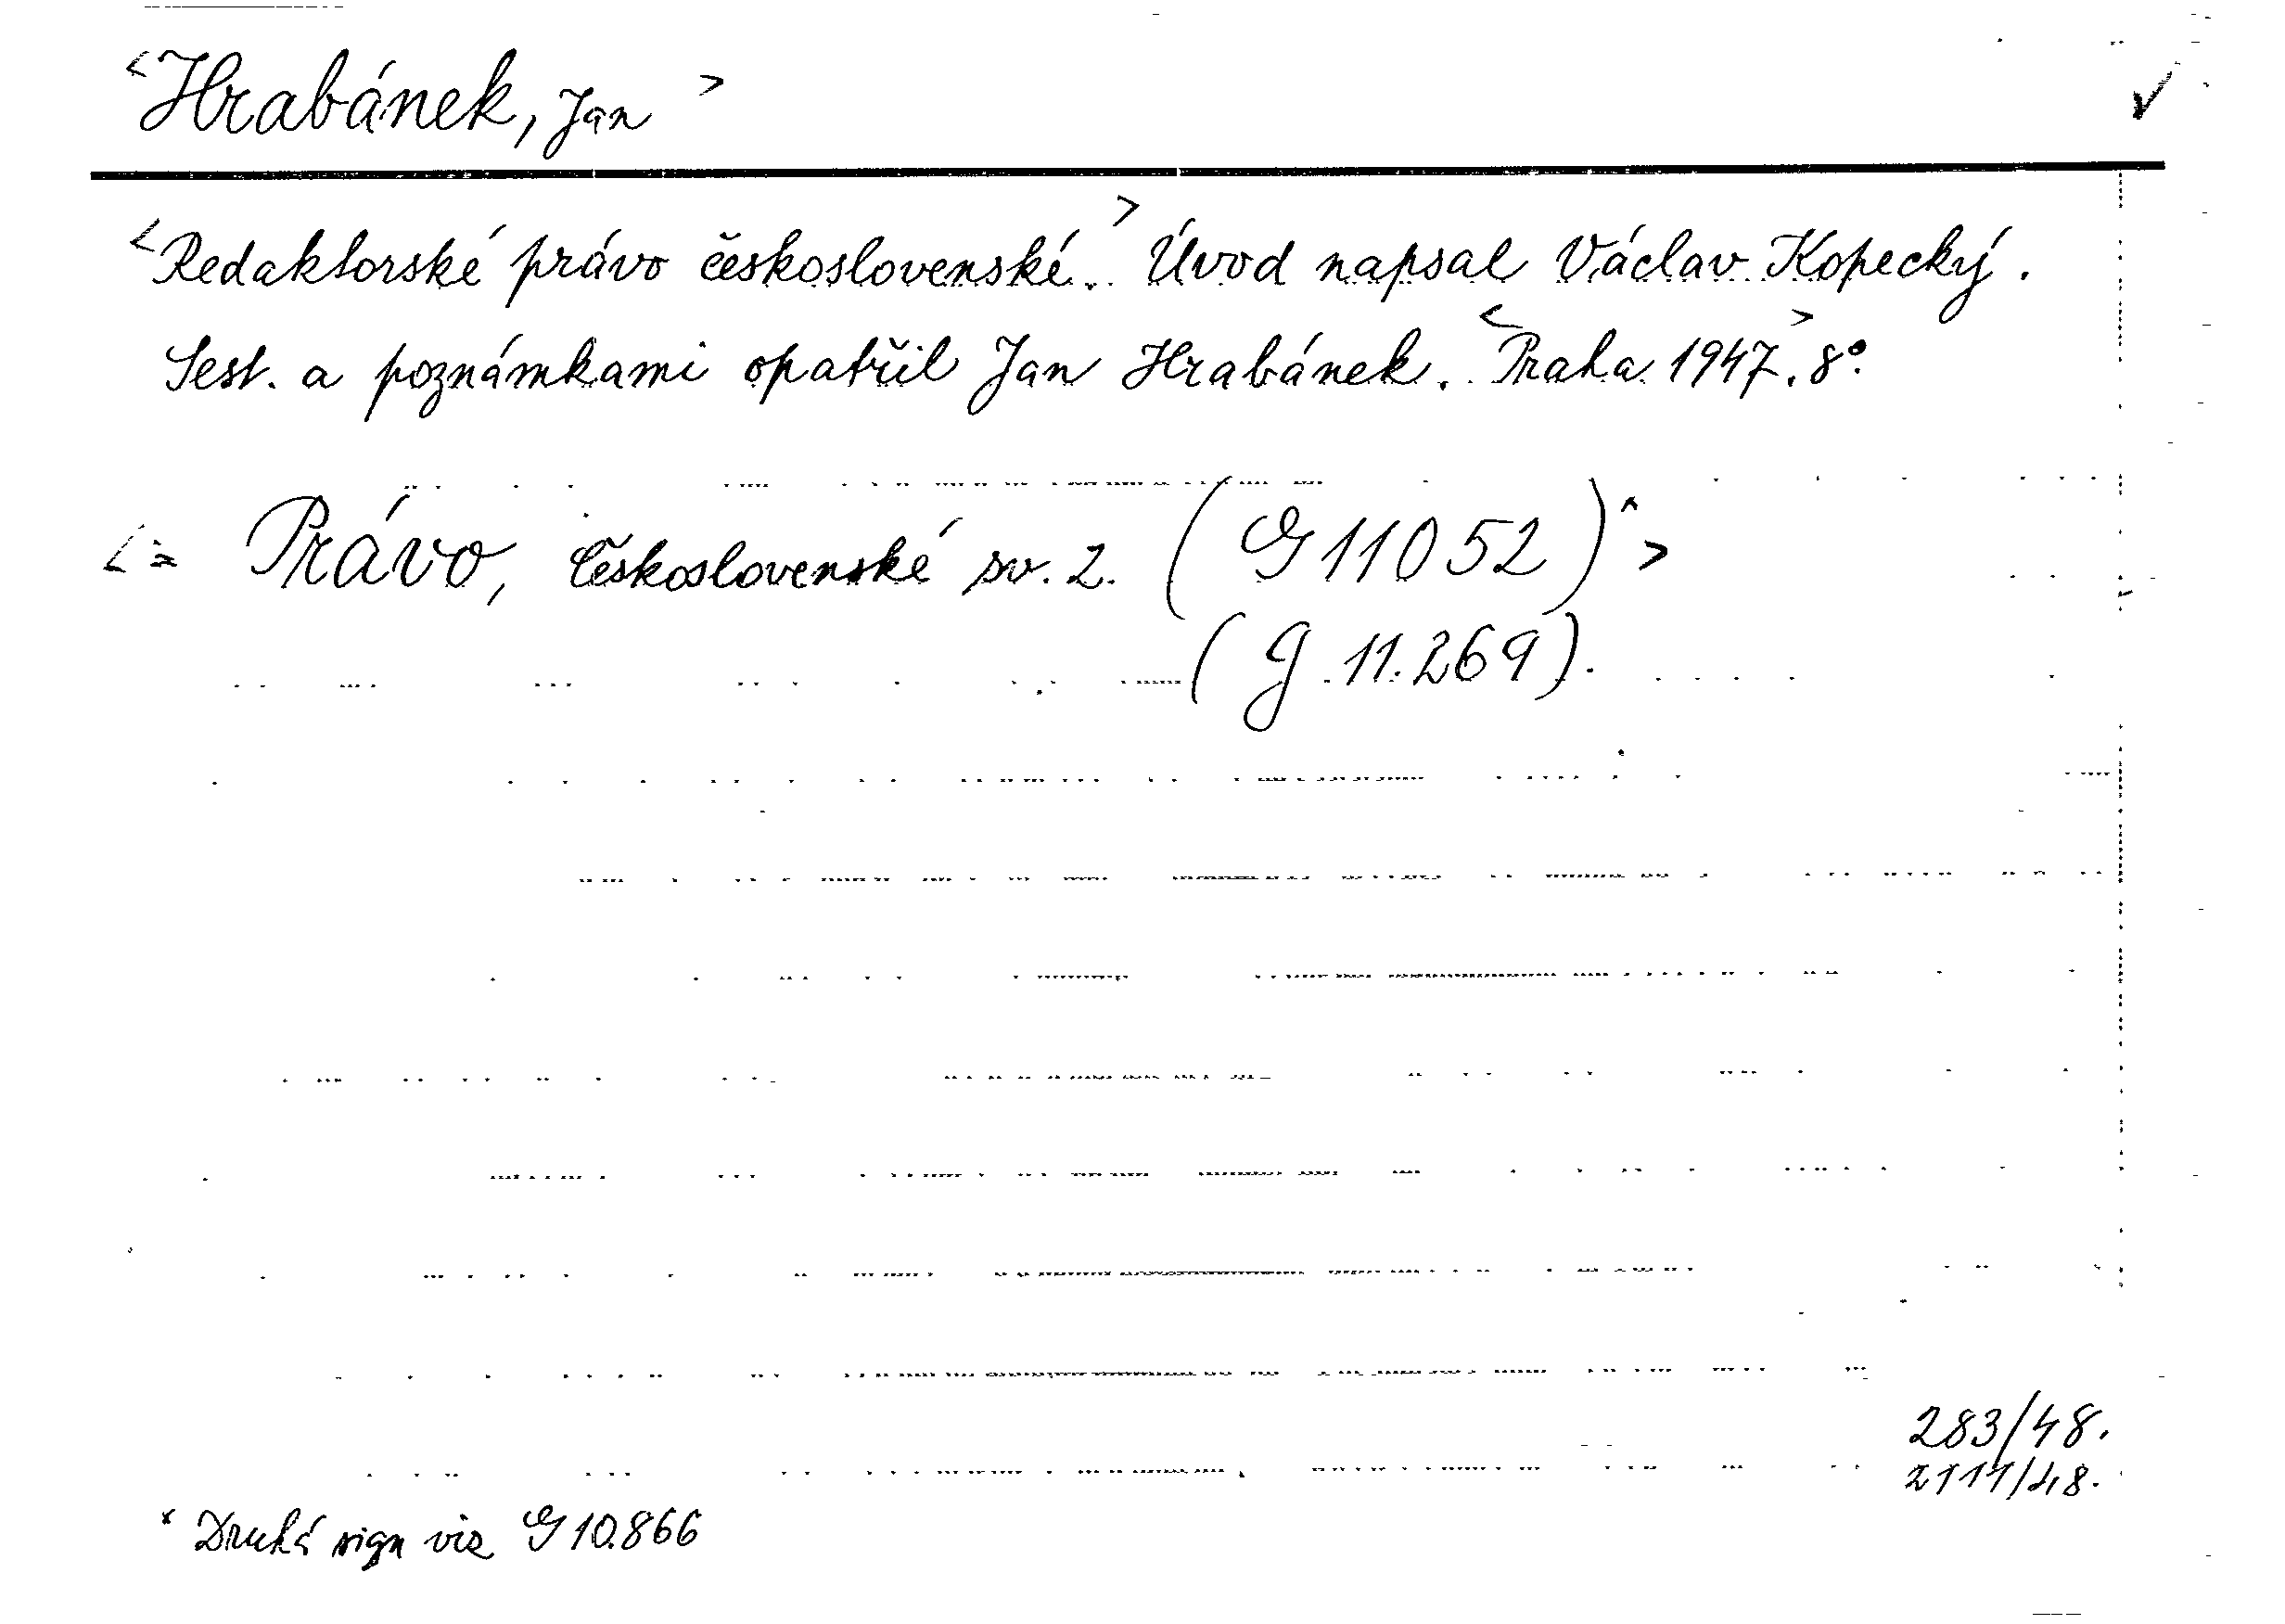 <Hrabánek, Jan> ✓
<Redaktorské právo československé.> Úvod napsal Václav Kopecký.
Sest. a poznámkami opatřil Jan Hrabánek. <Praha 1947>. 8°.
<= Právo, Československé sv. 2. (G 11052)ˣ>
(G 11.269).
283/48.
2111/48.
ˣ Druhá sign viz G 10.866